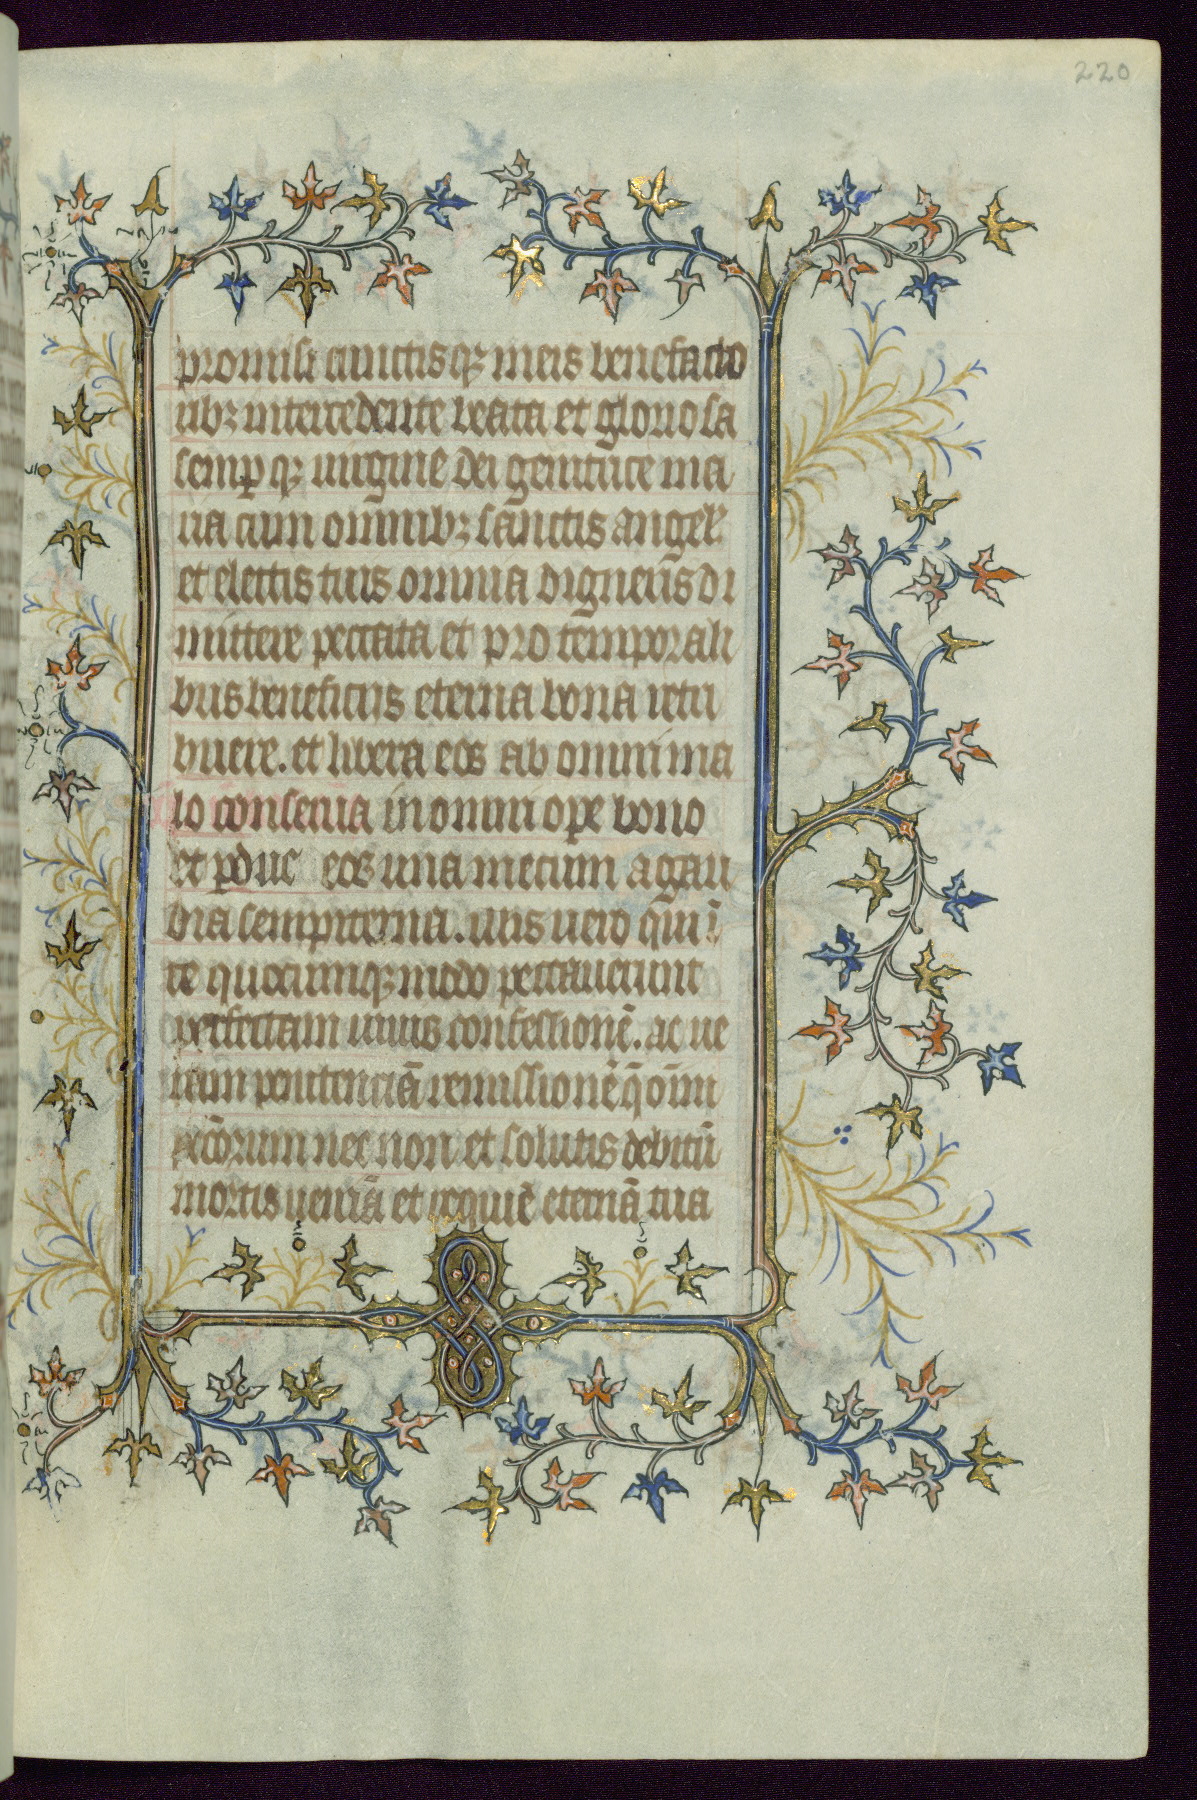 220
promisi cunctisqꝫ meis benefacto
ribꝫ intercedente beata et gloriosa
semp̱ qꝫ uirgine dei genitrice ma
ria cum om̄ibꝫ sanctis angel̄
et electis tuis omnia digneris di
mittere peccata et pro temporali
bus beneficiis eterna bona retri
buere. et libera eos ab omni ma
lo conserua in omni ope bono
et ꝑduc eos una mecum a gau
dia sempiterna. uiis uero qui ī
te quocumqꝫ modo peccauerunt
perfectam uiuis confessionē. ac ue
ram penitenciā remissionē q̄ oīm
pec̄orum nec non et solutis debitū
mortis ueniā et requiē eternā tua